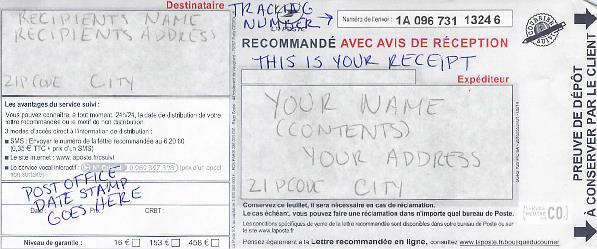 Destinataire
RECIPIENTS NAME
RECIPIENTS ADDRESS
ZIPCODE CITY
Les avantages du service suivi :
Vous pouvez connaître, à tout moment, 24h/24, la date de distribution de votre
lettre recommandée ou le motif de non distribution
3 modes d'accès direct à l'information de distribution :
■ SMS : Envoyer le numéro de la lettre recommandée au 6 20 80
(0,35 € TTC + prix d'un SMS)
■ Le site internet : www.laposte.fr/csuivi
■ Le service vocal interactif : (prix d'un appel
non surtaxé)
POST OFFICE
DATE STAMP
GOES HERE
Date : Prix : CRBT :
Niveau de garantie : 16 € 153 € 458 €
TRACKING
NUMBER
LA POSTE
Numéro de l'envoi : 1A 096 731 1324 6
RECOMMANDÉ AVEC AVIS DE RÉCEPTION
THIS IS YOUR RECEIPT
Expéditeur
YOUR NAME
(CONTENTS)
YOUR ADDRESS
ZIPCODE CITY
Conservez ce feuillet, il sera nécessaire en cas de réclamation.
Le cas échéant, vous pouvez faire une réclamation dans n'importe quel bureau de Poste.
Les conditions spécifiques de vente de la lettre recommandée sont disponibles dans votre bureau de Poste ou sur le
site www.laposte.fr
Pensez également à la Lettre recommandée en ligne, consultez www.laposte.fr/boutiqueducourrier
PREUVE DE DÉPÔT
À CONSERVER PAR LE CLIENT